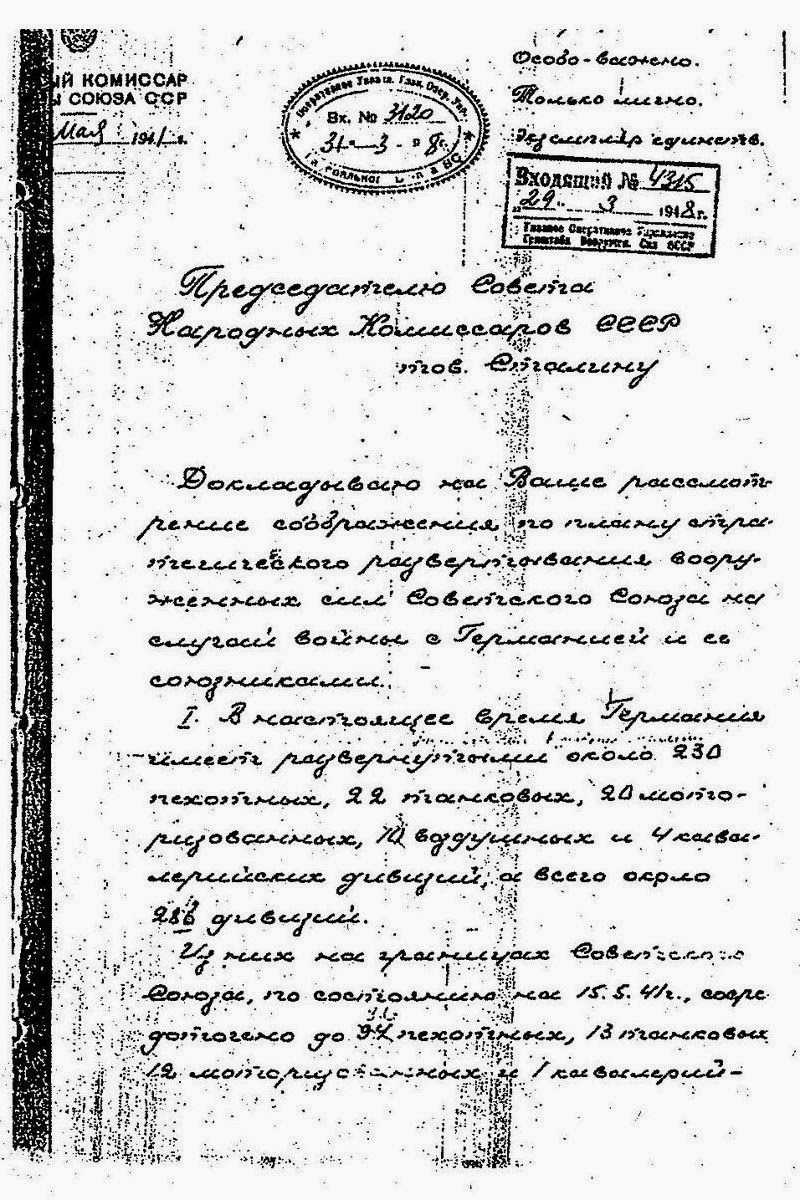 ЫЙ КОМИССАР
Ы СОЮЗА ССР
Мая 1941 г.
Оперативное Главн. Опер. Упр.
Вх. № 3120
31 - 3 - 8 г.
Особо-важно.
Только лично.
Экземпляр единств.
Входящий № 4315
„29“ 3 1948 г.
Главное Оперативное Управление
Генштаба Вооружен. Сил СССР
Председателю Совета
Народных Комиссаров СССР
тов. Сталину
Докладываю на Ваше рассмот-
рение соображения по плану стра-
тегического развертывания воору-
женных сил Советского Союза на
случай войны с Германией и ее
союзниками.
I. В настоящее время Германия
имеет развернутыми около 230
пехотных, 22 танковых, 20 мото-
ризованных, 10 воздушных и 4 кава-
лерийских дивизий, а всего около
286 дивизий.
Из них на границах Советского
Союза, по состоянию на 15.5.41г., сосре
доточено до пехотных, 13 танковых
12 моторизованных и 1 кавалерий-